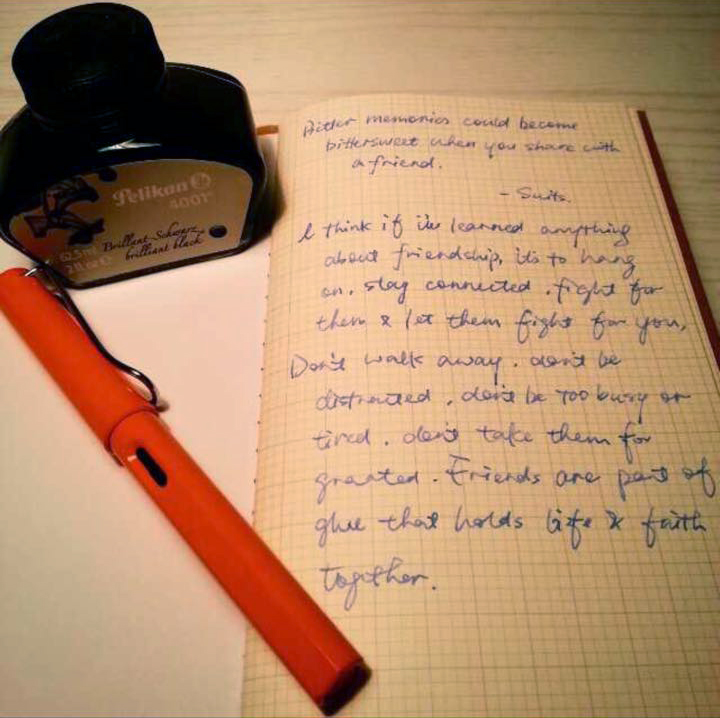 Pelikan
4001
62.5 ml
2 fl oz
Brillant-Schwarz
brilliant black
Bitter memories could become
bittersweet when you share with
a friend.
- Suits.
I think if i've learned anything
about friendship, it's to hang
on, stay connected, fight for
them & let them fight for you,
Don't walk away, don't be
distracted, don't be too busy or
tired, don't take them for
granted. Friends are part of
glue that holds life & faith
together.